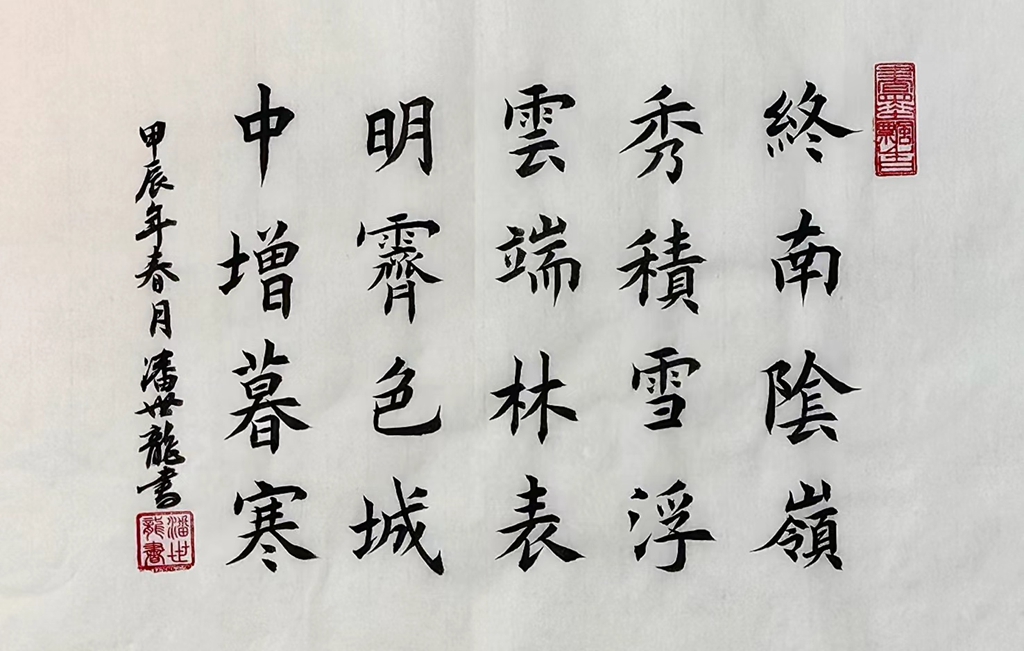 終南陰嶺
秀積雪浮
雲端林表
明霽色城
中增暮寒
甲辰年春月潘世龍書
潘世龍書